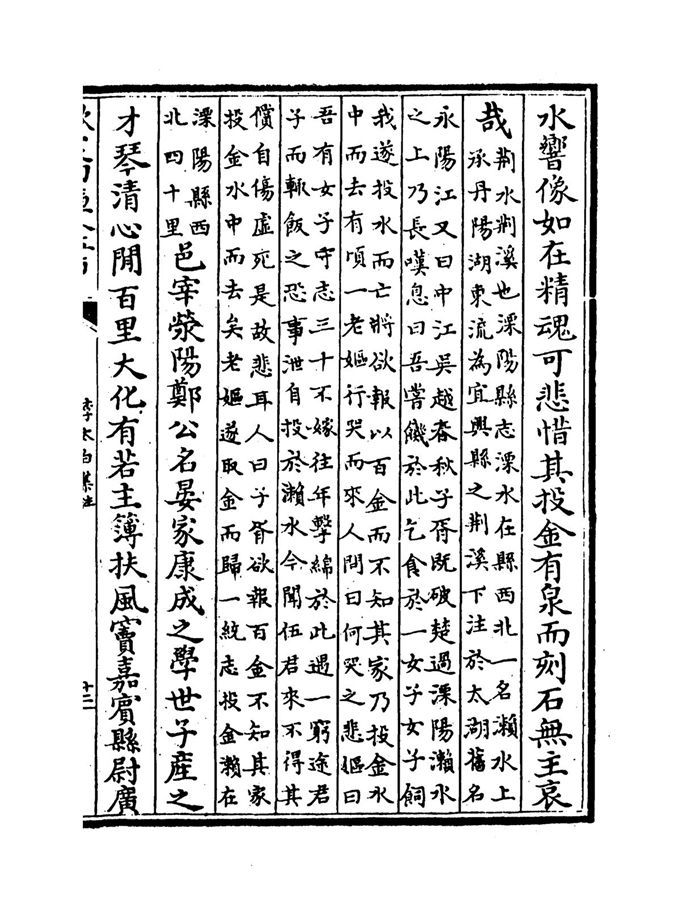 水響像如在精魂可悲惜其投金有泉而刻石無主哀
哉
荆水荆溪也溧陽縣志溧水在縣西北一名瀨水上
承丹陽湖東流為宜興縣之荆溪下注於太湖舊名
永陽江又曰中江吳越春秋子胥既破楚過溧陽瀨水
之上乃長嘆息曰吾嘗饑於此乞食於一女子女子飼
我遂投水而亡將欲報以百金而不知其家乃投金水
中而去有頃一老嫗行哭而來人問曰何哭之悲嫗曰
吾有女子守志三十不嫁往年擊綿於此遇一窮途君
子而輒飯之恐事泄自投於瀨水今聞伍君來不得其
償自傷虛死是故悲耳人曰子胥欲報百金不知其家
投金水中而去矣老嫗遂取金而歸一統志投金瀨在
溧陽縣西
北四十里
邑宰滎陽鄭公名晏家康成之學世子產之
才琴清心閒百里大化有若主簿扶風竇嘉賓縣尉廣
李太白集注